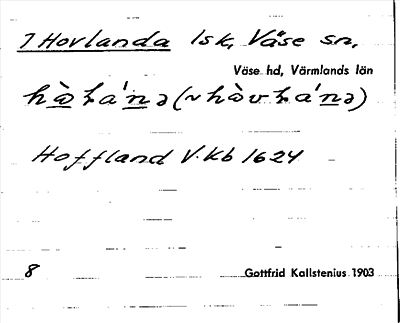 7 Hovlanda lsk, Väse sn,
Väse hd, Värmlands län
Hoffland V.Kb 1624
8 Gottfrid Kallstenius 1903